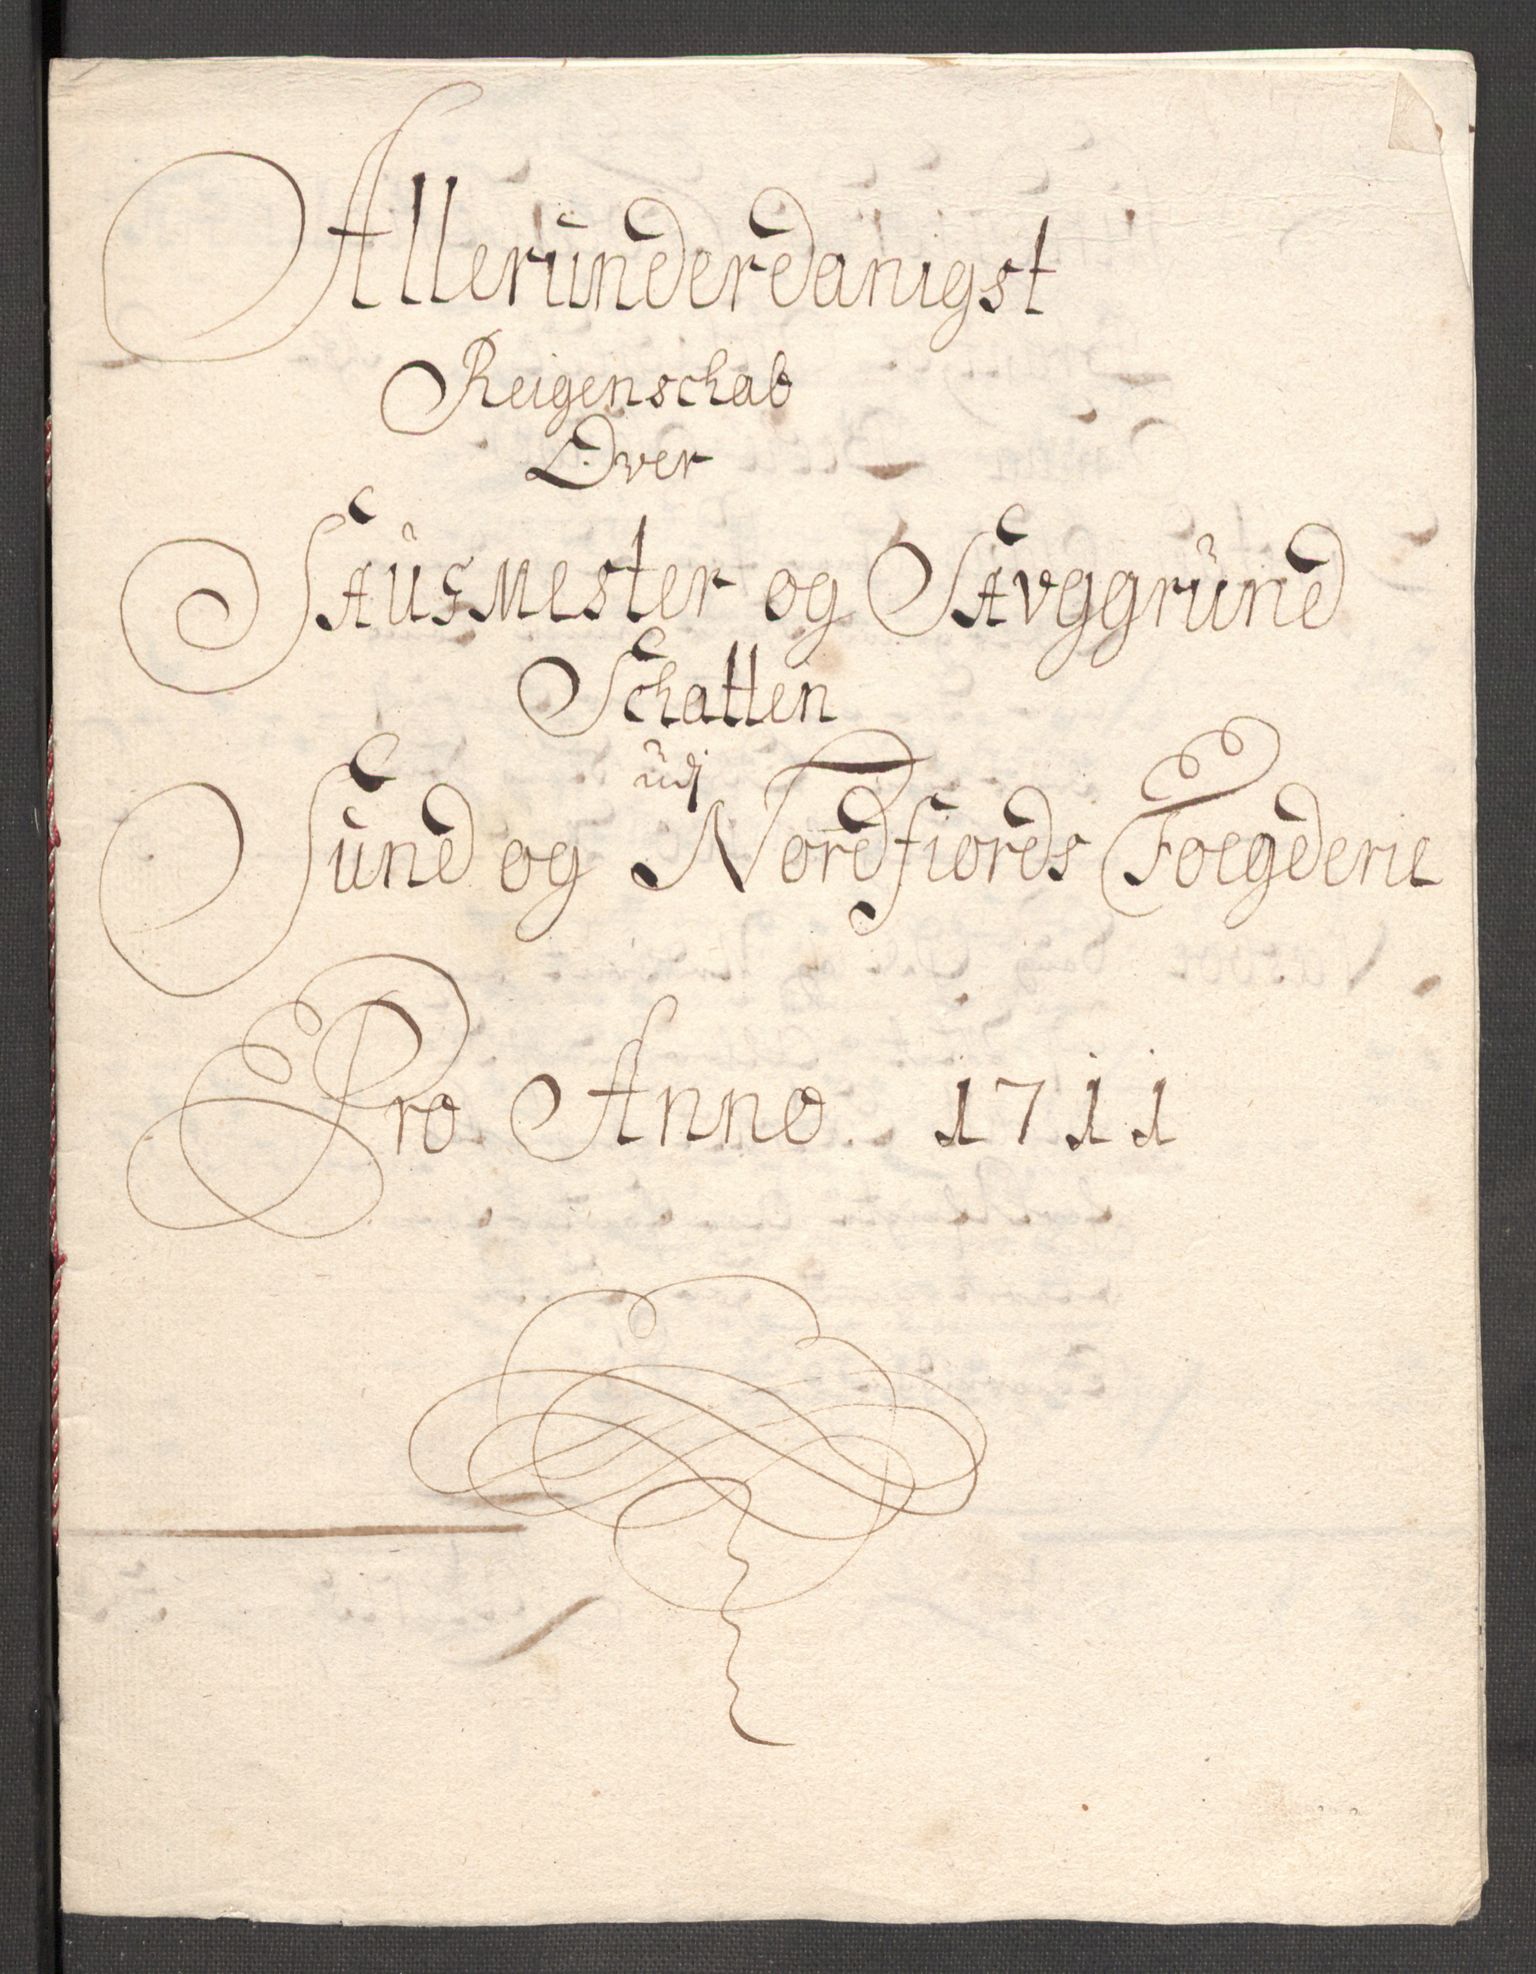 Alleründerdanigst
Reigenschab
Over
Saugmester og Savggründ
Schatten
udj
Sünd og Nordfiords Foegderie
Pro Anno 1711